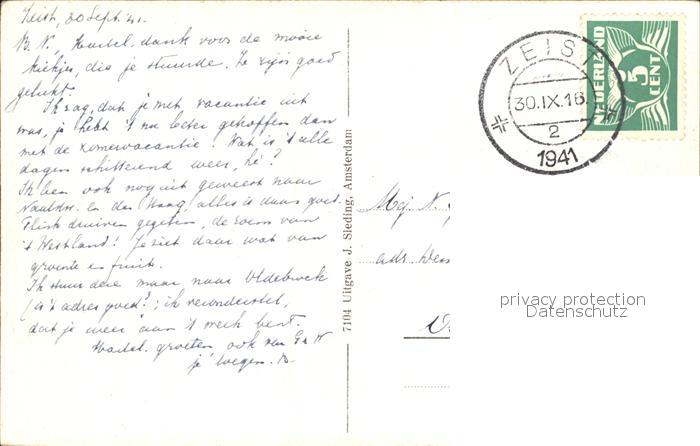 Zeist, 30 Sept. '41.
B. N., Hartel. dank voor de mooie
kiekjes, die je stuurde. Ze zijn goed
gelukt.
Ik zag, dat je met vacantie uit
was, je hebt 't nu beter getroffen dan
met de zomervacantie! Wat is 't alle
dagen schitterend weer, hè?
Ik ben ook nog uit geweest naar
Naaldw. en den Haag, alles is daar goed.
Flink druiven gegeten, de roem van
't Westland! Je ziet daar wat van
groente en fruit.
Ik stuur deze maar naar Oldebroek
(is 't adres goed?; ik veronderstel,
dat je weer aan 't werk bent.
Hartel. groeten ook van
je
7104 Uitgave J. Sleding, Amsterdam
ZEIST
30.IX.16.
2
1941
NEDERLAND
5
CENT
Mej. N.
adr.
privacy protection
Datenschutz